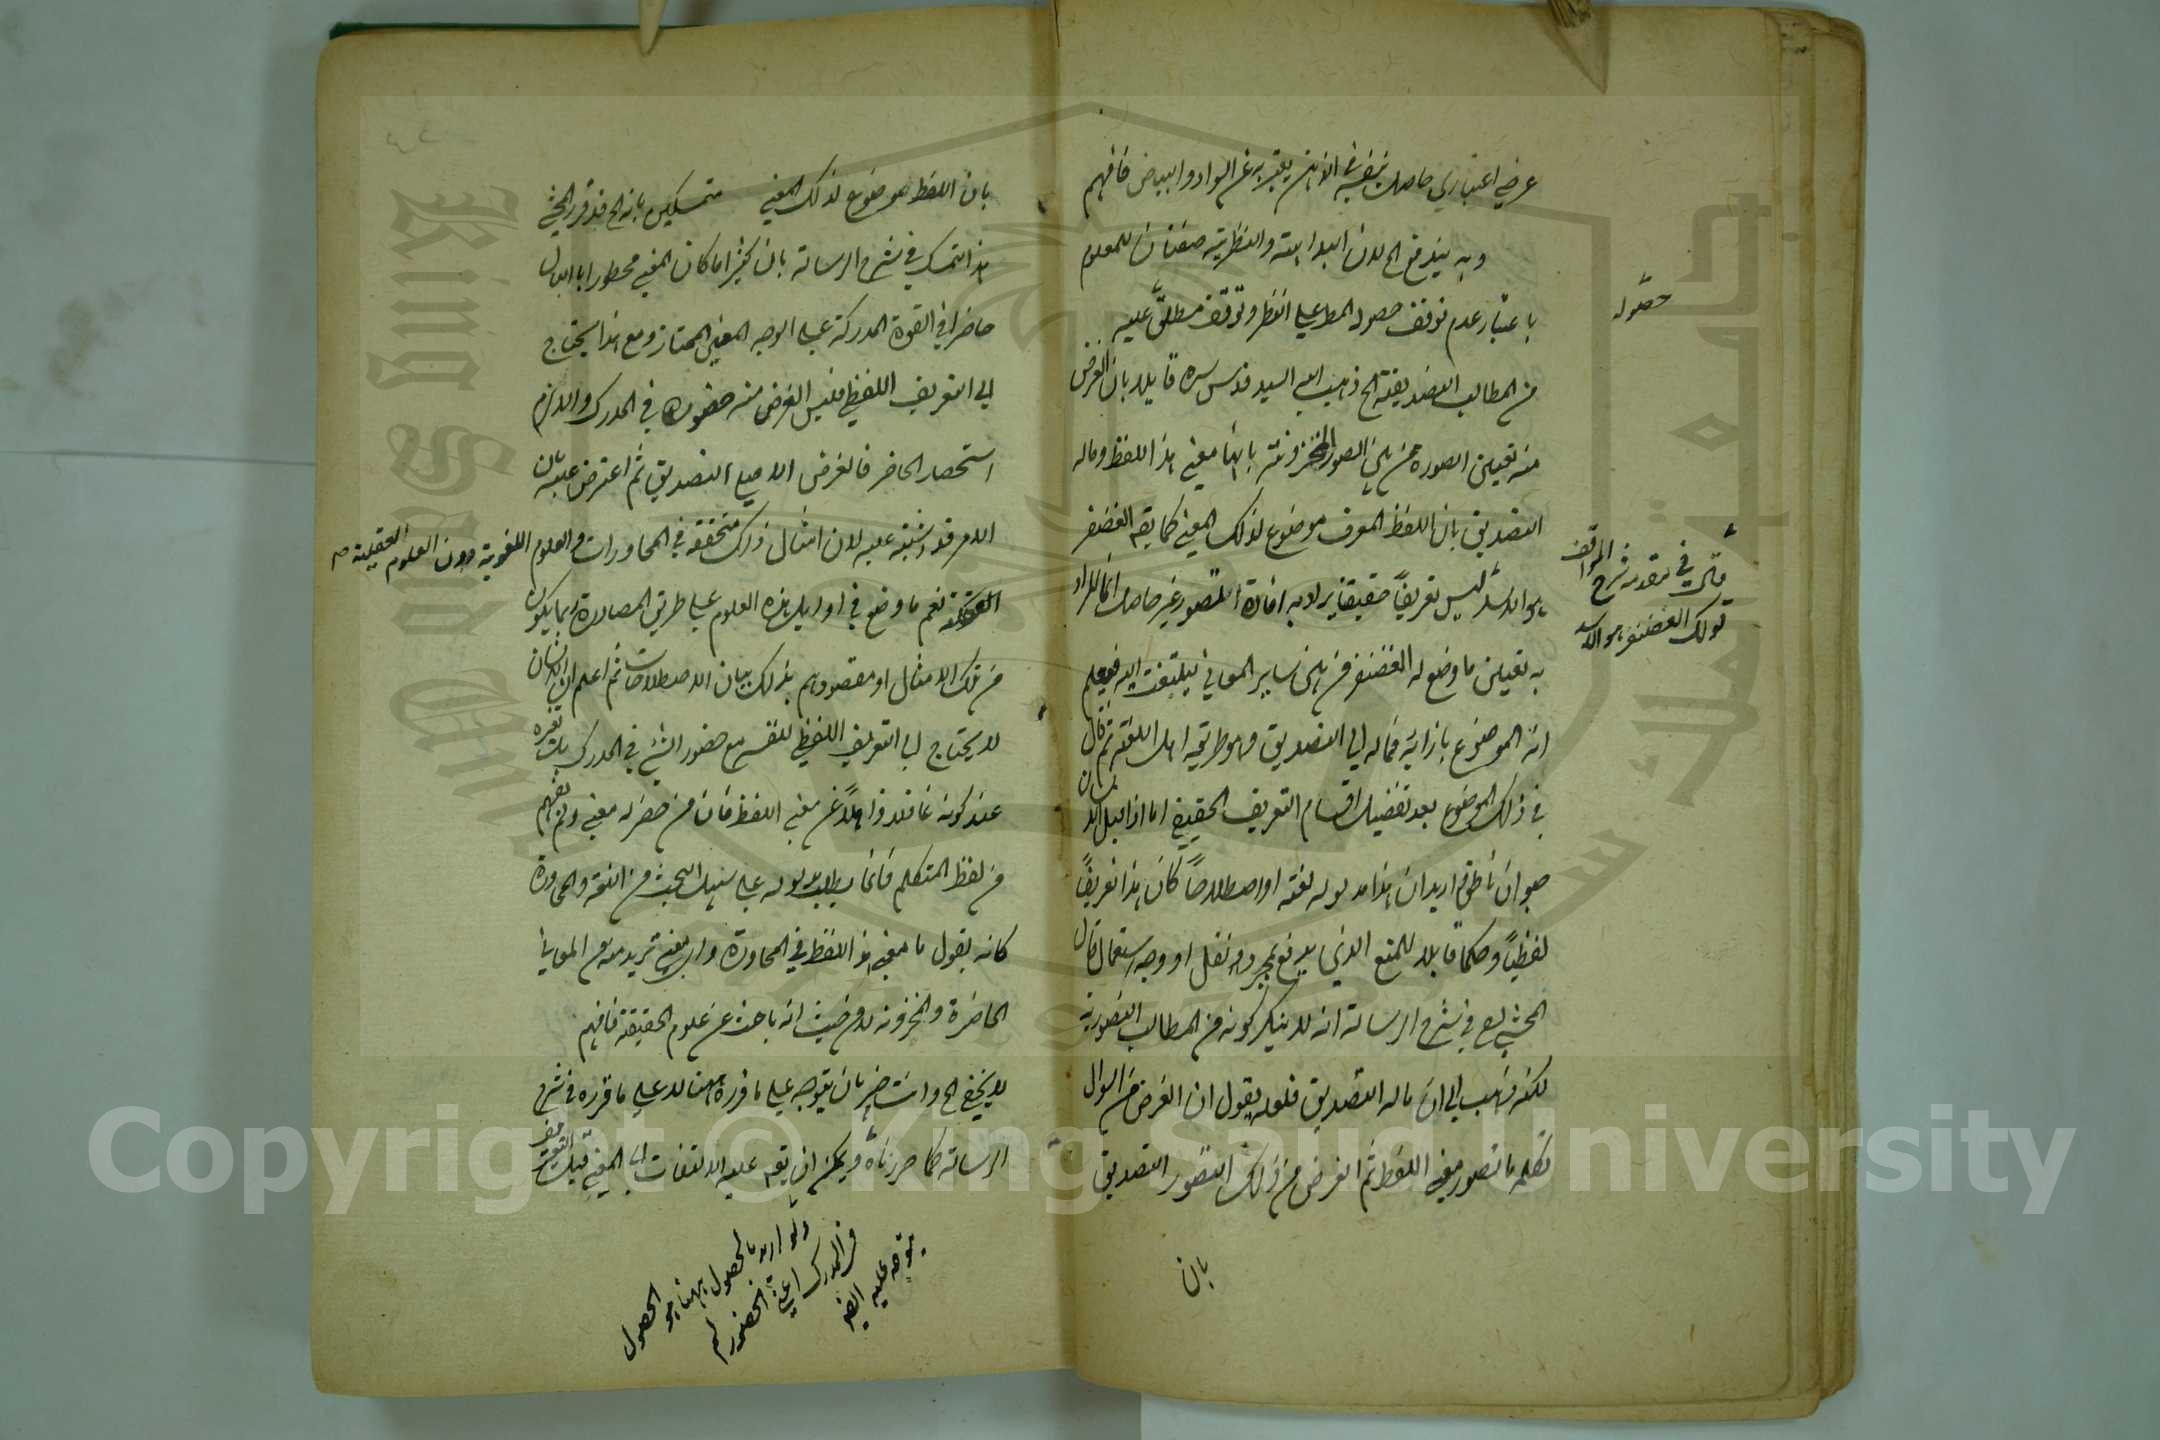 عرضي اعتباري حاصل بنفسه في الذهن يعتبر به عن السواد والبياض فافهم
وبه يندفع الخ لان البداهة والنظرية صفتان للمعلوم
باعتبار عدم توقف حصوله المط على النظر وتوقف مطلق عليه
من المطالب التصديقية الخ ذهب اليه السيد قدس سره قايلا بان الغرض
منه تعيين الصورة من بين الصور المخزونة بانها معنى هذا اللفظ وماله
التصديق بان اللفظ المعرف موضوع لذلك المعنى كما يقه الغضنفر
هو الاسد ليس تعريفا حقيقيا يراد به افادة التصور غير حاصل انما المراد
به تعيين ما وضع له الغضنفر من بين ساير المعاني فيلتفت اليه فيعلم
انه الموضوع بازائه فماله الى التصديق وهو طريقة اهل اللغة ثم قال
في ذلك الموضوع بعد تفصيل اقسام التعريف الحقيقي اما اذا قيل الانسان
حيوان ناطق اريد ان هذا مدلوله لغة او اصطلاحا كان هذا تعريفا
لفظيا وحكما قابلا للمنع الذي يدفع بمجرد نقل او وجه استعمال قال
المحشي في شرح الرسالة انه لا ينكر كونه من المطالب التصورية
لكنه ذهب الى ان ماله التصديق فلعله يقول ان الغرض من السوال
تكلمه ما تصور معنى اللفظ ثم الغرض من ذلك التصور التصديق
بان
حصوله
قال في مقدمة شرح المواقف
قولك الغضنفر هو الاسد
بان اللفظ موضوع لذلك المعنى متمسكين بانه الخ قد قرر المحشي
هذا التمسك في شرح الرسالة بان كثيرا ما كان المعنى محطورا بالبال
حاضرا في القوة المدركة على الوجه المعنى الممتاز ومع هذا يحتاج
الى التعريف اللفظي فليس الغرض منه حضوره في المدرك والا لزم
استحصار الحاضر فالغرض الاصلي التصديق ثم اعترض عليه بان
الامر قد اشتبه عليه لان امثال ذلك متحققة في المحاورات والعلوم اللغوية دون العلوم العقلية
نعم ما وضع في اوايل هذه العلوم على طريق المصادرة ربما يكون
من تلك الامثال او مقصودهم بذلك بيان الاصطلاحات ثم اعلم ان الانسان
لا يحتاج الى التعريف اللفظي لنفسه مع حضور الشئ في المدرك بل لغيره
عند كونه غافلا ذاهلا عن معنى اللفظ فان من حضر له معنى ولم يفهم
من لفظ المتكلم فانما يطلب مدلوله على سبيل البحث من اللغة والمحاورة
كانه يقول ما معنى هذا اللفظ في المحاورة واي معنى تريد منه من المعاني
الحاضرة والمخزونة لا من حيث انه باحث عن علوم الحقيقة فافهم
لا يخفى الخ وانت خبير بان يتوجه على ما قرره ههنا لا على ما قرره في شرح
الرسالة كما حررناه ويمكن ان يقه عليه الالتفات الى المعنى قبل
ولو اريد بالحصول ههنا هو الحصول
في المدرك اعني الحضور لم
يتوجه عليه ايضه